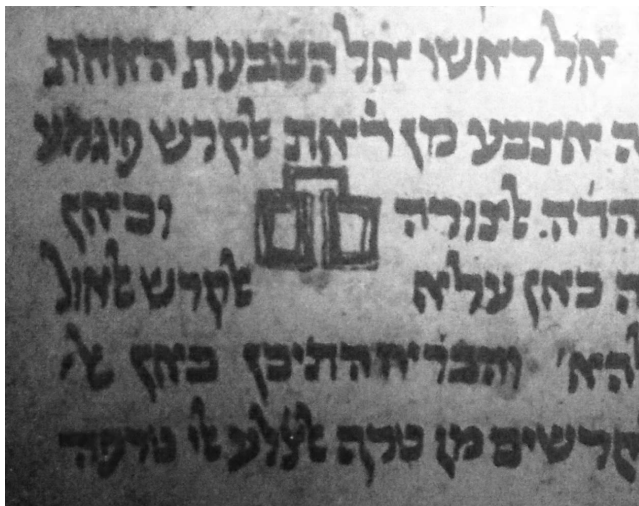 אל ראשו אל הטבעת האחת
ה אצבע מן ראת לקרש פיגמע
הדה לצורה וכאן
ה כאן עלא לקרש לאול
והבריח התיכן כאן
קרשים מן טרה לצלע לי טרפה